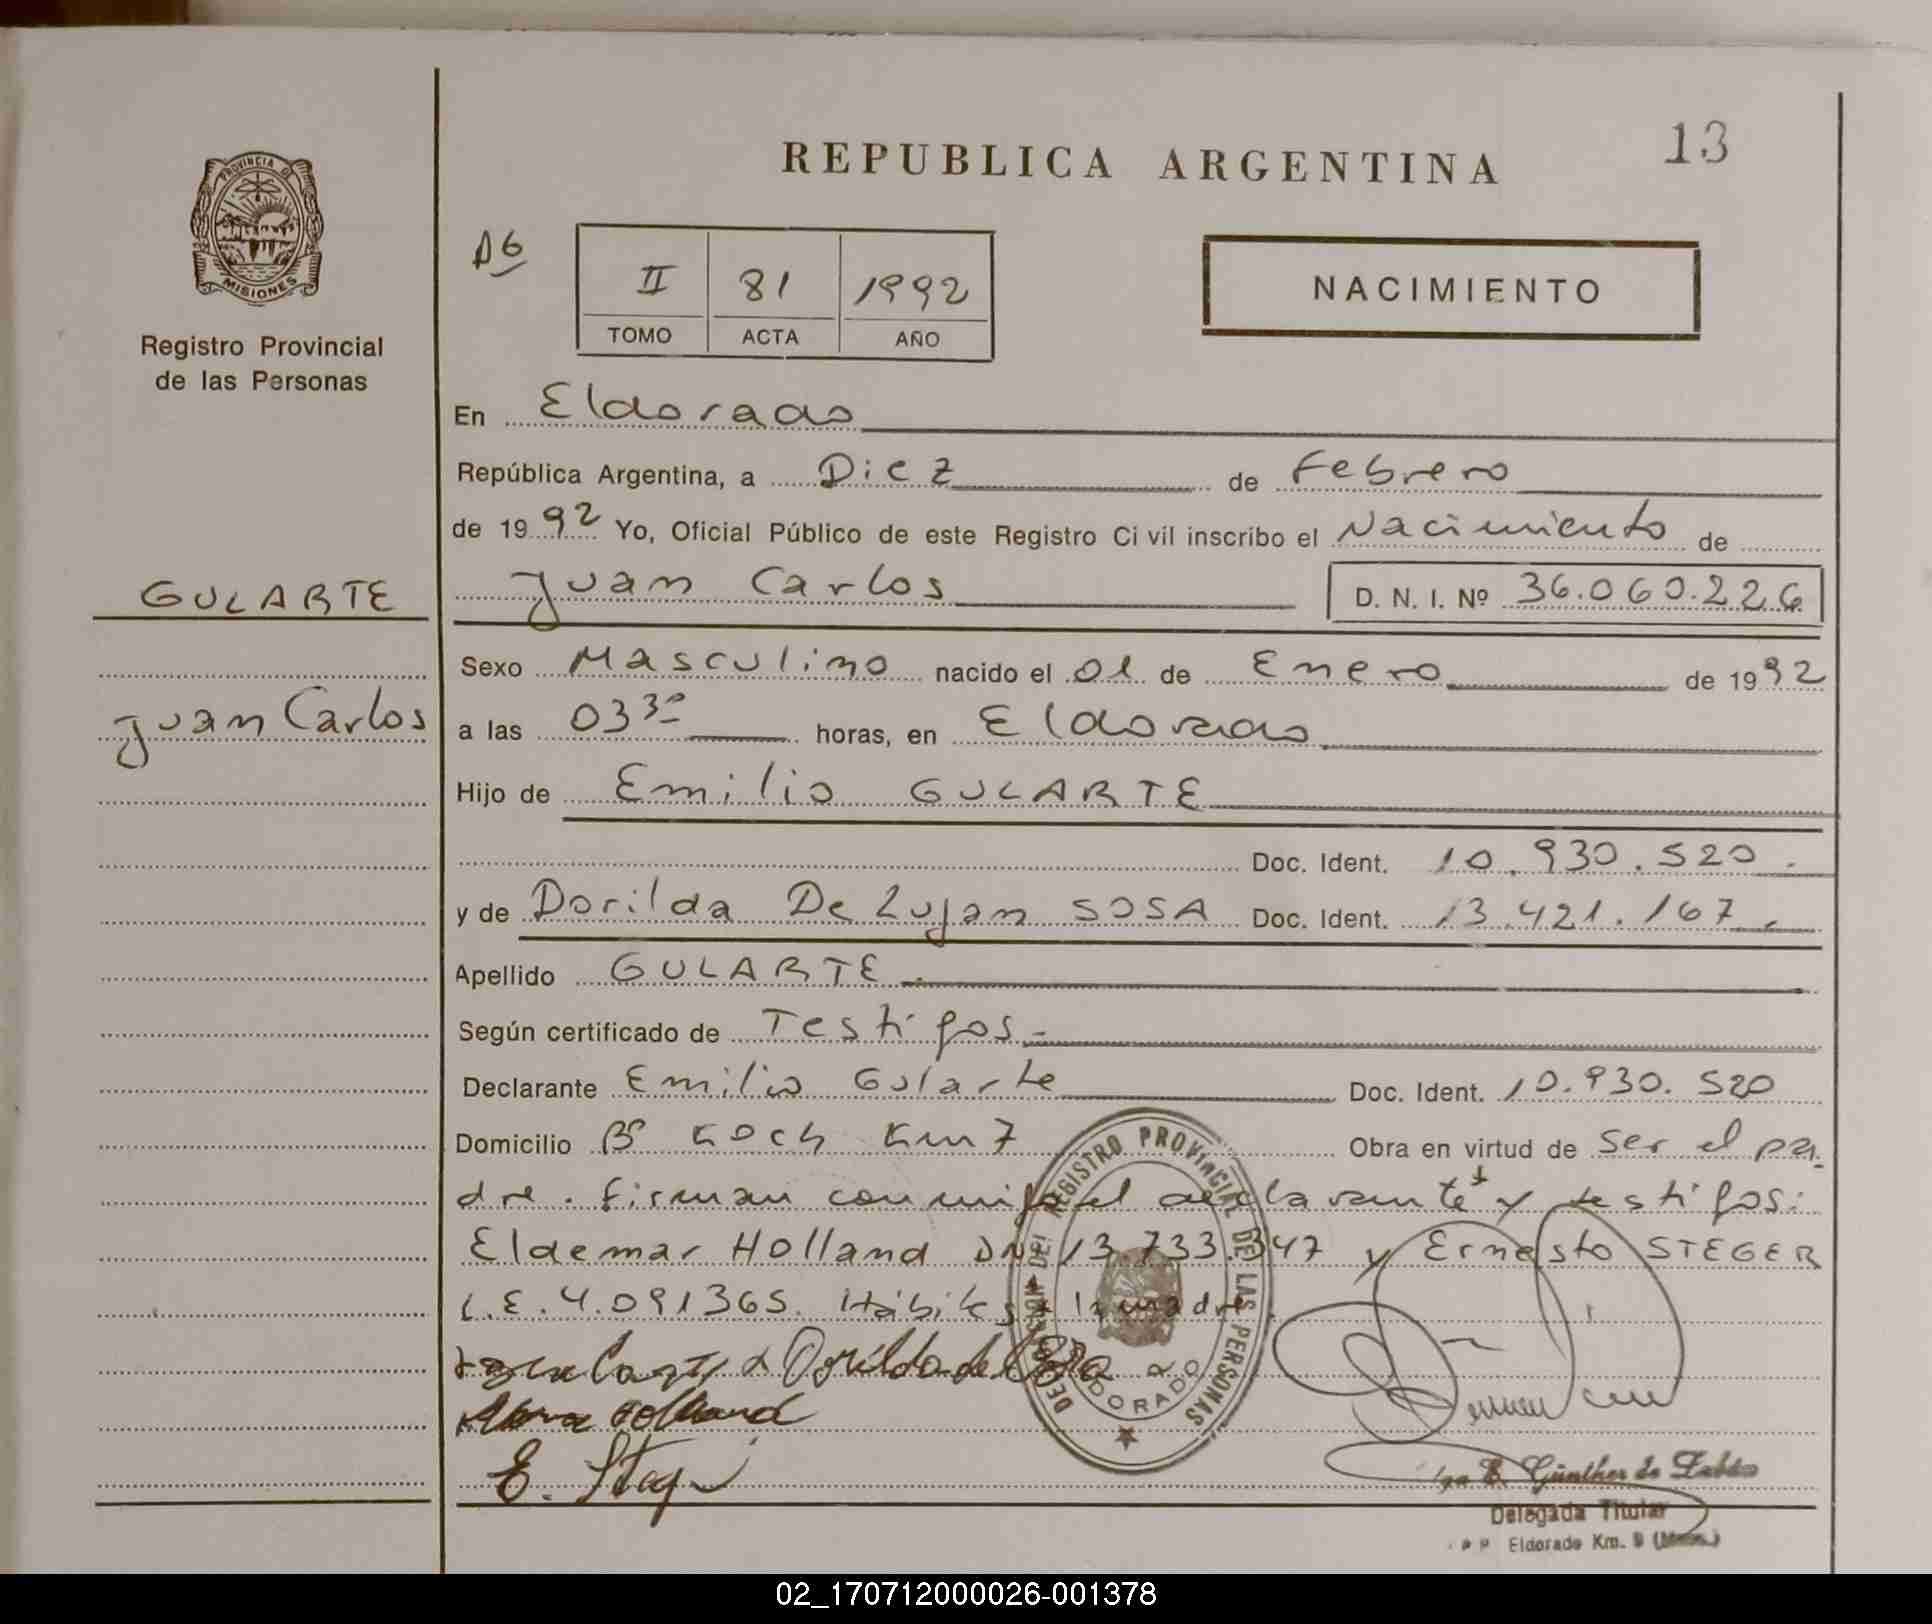 PROVINCIA D
MISIONES
Registro Provincial
de las Personas
GULARTE
Juan Carlos
13
REPUBLICA ARGENTINA
II 81 1992
TOMO ACTA AÑO
NACIMIENTO
En Eldorado
República Argentina, a Diez de Febrero
de 1992 Yo, Oficial Público de este Registro Civil inscribo el Nacimiento de
Juan Carlos D. N. I. Nº 36.060.226
Sexo Masculino nacido el 01 de Enero de 1992
a las 03³⁰ horas, en Eldorado
Hijo de Emilio GULARTE
Doc. Ident. 10.930.520.
y de Dorilda De Lujan SOSA Doc. Ident. 13.421.167.
Apellido GULARTE.
Según certificado de Testigos.-
Declarante Emilio Gularte Doc. Ident. 10.930.520
Domicilio Bº Koch Km 7 Obra en virtud de ser el pa-
dre. Firman conmigo el declarante + y testigos:
Eldemar Holland DNI 13.733.347 y Ernesto STEGER
L.E. 4.091365. Hábiles + la madre.
DELEGACION DEL REGISTRO PROVINCIAL DE LAS PERSONAS
ELDORADO
E. Steger
E. Günther de
Delegada Titular
Eldorado Km. 9 (Mnes.)
02_170712000026-001378